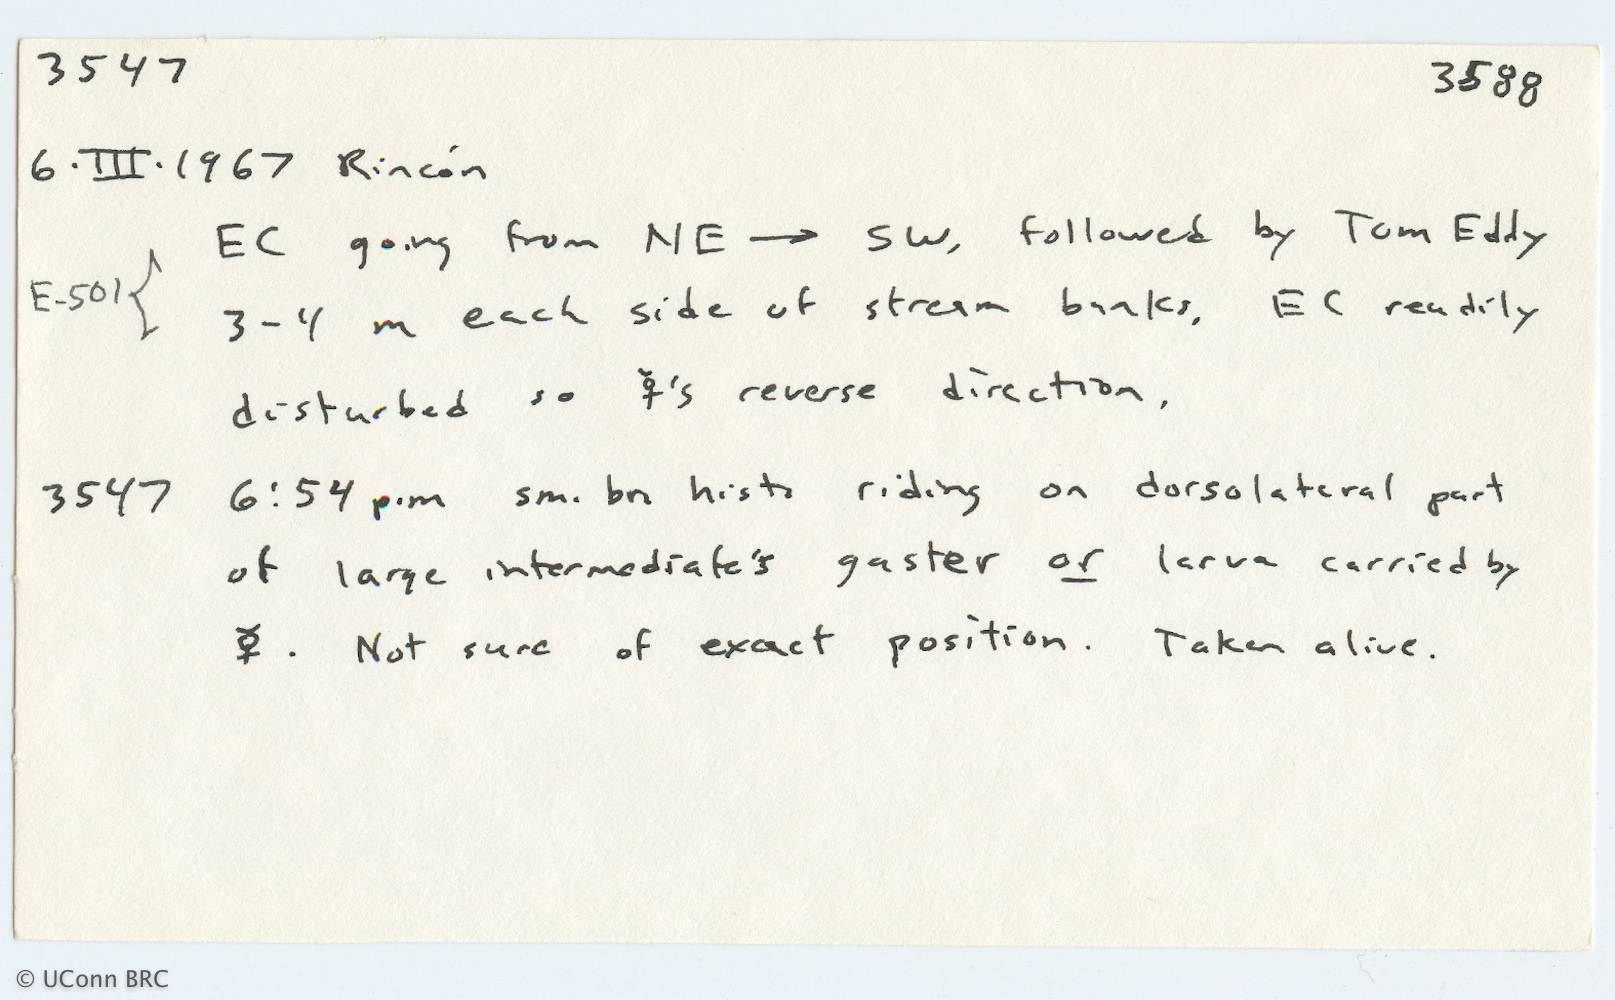 3547 3588
6·III·1967 Rincón
EC going from NE → SW, followed by Tom Eddy
E-501 { 3-4 m each side of stream banks. EC readily
disturbed so ☿'s reverse direction.
3547 6:54 p.m sm. bn histo riding on dorsolateral part
of large intermediate's gaster or larva carried by
☿. Not sure of exact position. Taken alive.
© UConn BRC